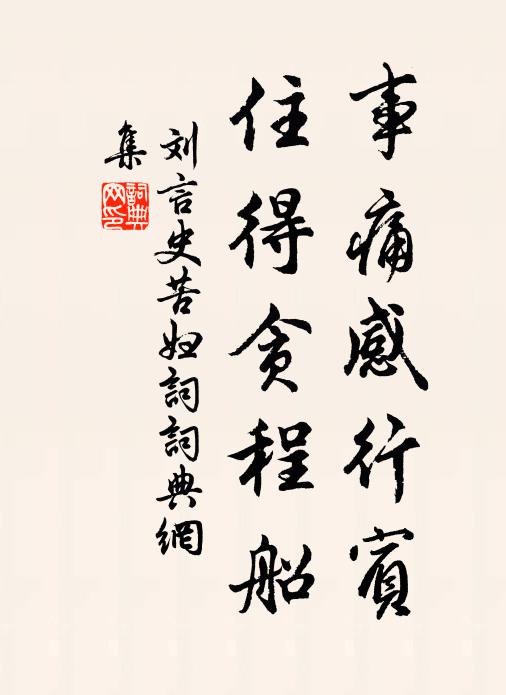 事痛感行賓
住得貪程船
刘言史苦妇詞詞典網
集
詞典網印